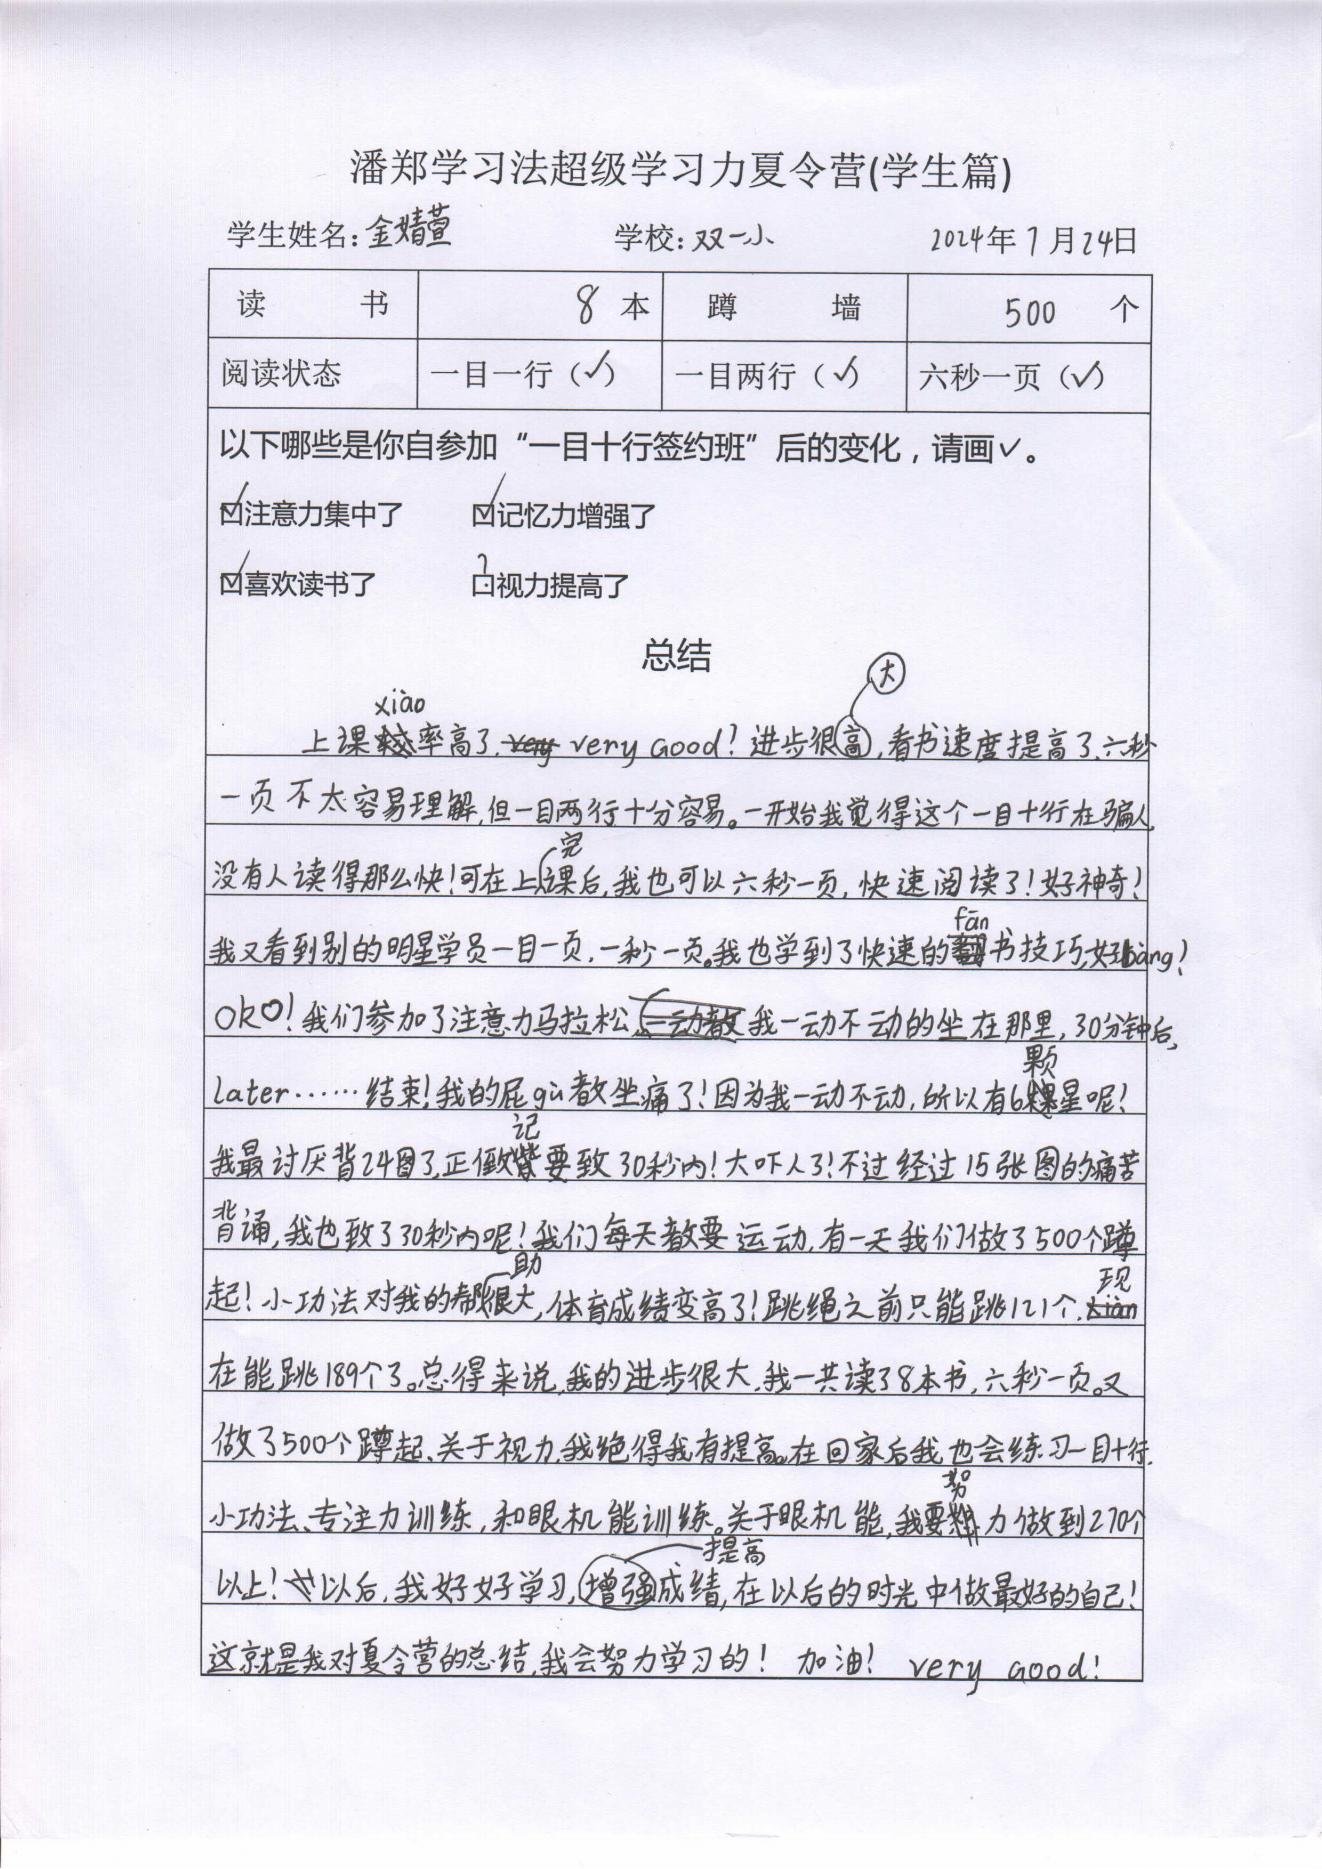 潘郑学习法超级学习力夏令营(学生篇)
学生姓名:金婧萱 学校:双一小 2024年7月24日
读 书 8 本 蹲 墙 500 个
阅读状态 一目一行（✓） 一目两行（✓） 六秒一页（✓）
以下哪些是你自参加“一目十行签约班”后的变化，请画✓。
☑注意力集中了 ☑记忆力增强了
☑喜欢读书了 □视力提高了
?
总结
大
xiào
上课率高了,very Good!进步很高,看书速度提高了,六秒
一页不太容易理解,但一目两行十分容易。一开始我觉得这个一目十行在骗人,
完
没有人读得那么快!可在上课后,我也可以六秒一页,快速阅读了!好神奇!
fān
我又看到别的明星学员一目一页,一秒一页。我也学到了快速的书技巧,好bàng!
OK♡!我们参加了注意力马拉松,我一动不动的坐在那里,30分钟后,
颗
later……结束!我的屁gù都坐痛了!因为我一动不动,所以有6星呢!
记
我最讨厌背24图了,正倒要致30秒内!大吓人了!不过经过15张图的痛苦
背诵,我也致了30秒内呢!我们每天都要运动,有一天我们做了500个蹲
助
起!小功法对我的帮很大,体育成绩变高了!跳绳之前只能跳121个,
现
在能跳189个了。总得来说,我的进步很大,我一共读了8本书,六秒一页。又
做了500个蹲起、关于视力,我绝得我有提高。在回家后我也会练习一目十行,
努
小功法、专注力训练,和眼机能训练。关于眼机能,我要力做到270个
提高
以上!以后,我好好学习,增强成绩,在以后的时光中做最好的自己!
这就是我对夏令营的总结,我会努力学习的! 加油! very Good!